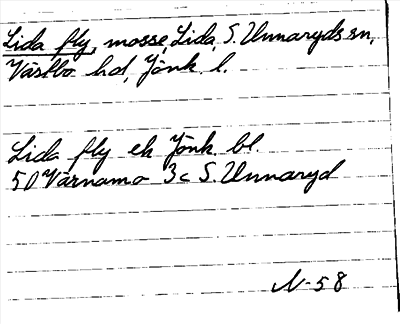 Lida fly, mosse, Lida, S. Unnaryds sn,
Västbo hd, Jönk. l.
Lida fly ek Jönk. bl.
5D Värnamo 3c S. Unnaryd
N-58